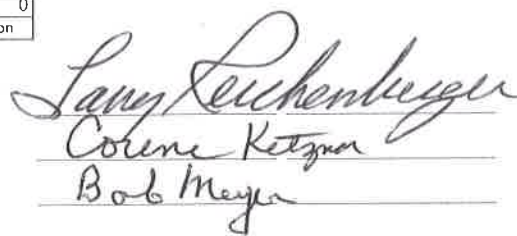 0
on
Larry Reichenberger
Corene Ketzner
Bob Meyer